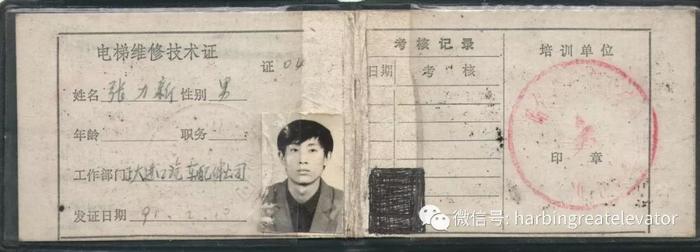 电梯维修技术证
证 04
姓名 张力新 性别 男
年龄 职务
工作部门 进口汽车配件公司
发证日期 91.2.10
考核记录
日期 考核
培训单位
印章
微信号: harbingreatelevator